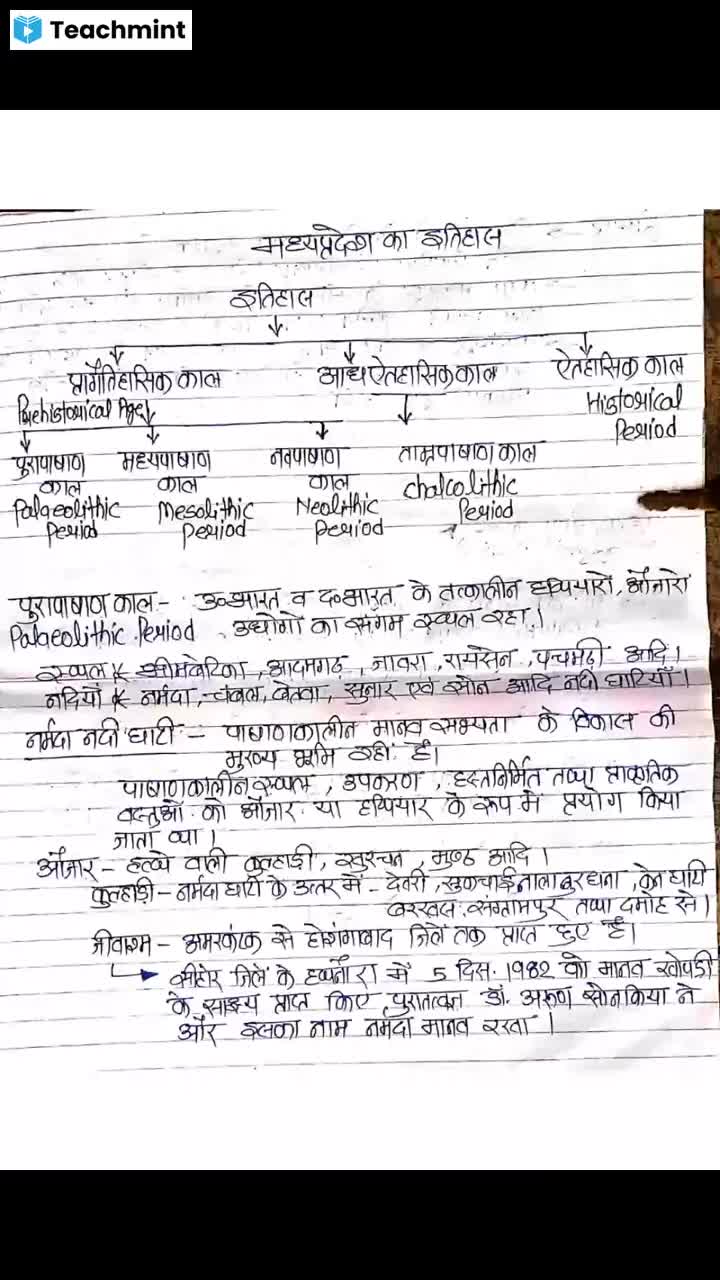 Teachmint
मध्यप्रदेश का इतिहास
इतिहास
प्रागैतिहासिक काल आद्य ऐतहासिक काल ऐतहासिक काल
Prehistorical Age Historical
Period
पुरापाषाण मध्यपाषाण नवपाषाण ताम्रपाषाण काल
काल काल काल Chalcolithic
Palaeolithic Mesolithic Neolithic Period
Period Period Period
पुरापाषाण काल - उ०भारत व द०भारत के तत्कालीन हथियारों, औजारों
Palaeolithic Period उद्योगों का संगम स्थल रहा।
स्थल भीमबेटिका, आदमगढ़, जावरा, रायसेन, पचमढ़ी आदि।
नदियाँ नर्मदा, चंबल, बेतवा, सुनार एवं सोन आदि नदी घाटियाँ।
नर्मदा नदी घाटी - पाषाणकालीन मानव सभ्यता के विकास की
मुख्य भूमि रही है।
पाषाणकालीन स्थल, उपकरण, हस्तनिर्मित तथा प्राकृतिक
वस्तुओं को औजार या हथियार के रूप में प्रयोग किया
जाता था।
औजार - हत्थे वाली कुल्हाड़ी, खुरचन, मुष्ठ आदि।
कुल्हाड़ी - नर्मदा घाटी के उत्तर में - देवरी, सुकचाईनाला बुरधना, केन घाटी
बरखल, संग्रामपुर तथा दमोह से।
जीवाश्म - अमरकंटक से होशंगाबाद जिले तक प्राप्त हुए हैं।
सीहोर जिले के हथनौरा में 5 दिस. 1982 को मानव खोपड़ी
के साक्ष्य प्राप्त किए पुरातत्वज्ञ डॉ. अरूण सोनकिया ने
और इसका नाम नर्मदा मानव रखा।